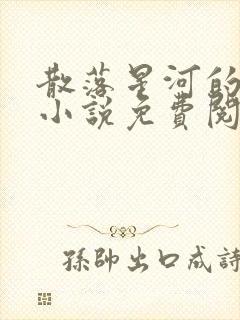 散落星河的
小說免費閱
孫帥出口成詩